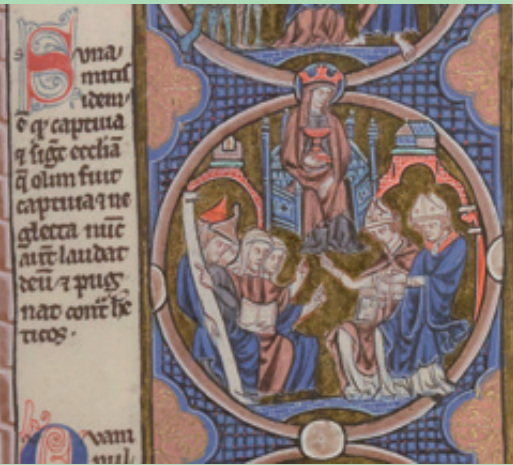 Suna
mitis
idem
ē qꝫ captiua
⁊ sigt̄ eccliā
q̄ olim fuit
captiua ⁊ ne
glecta nūc
aūt laudat
deū ⁊ pug
nat cont̄ he
ticos.
Quam
pul